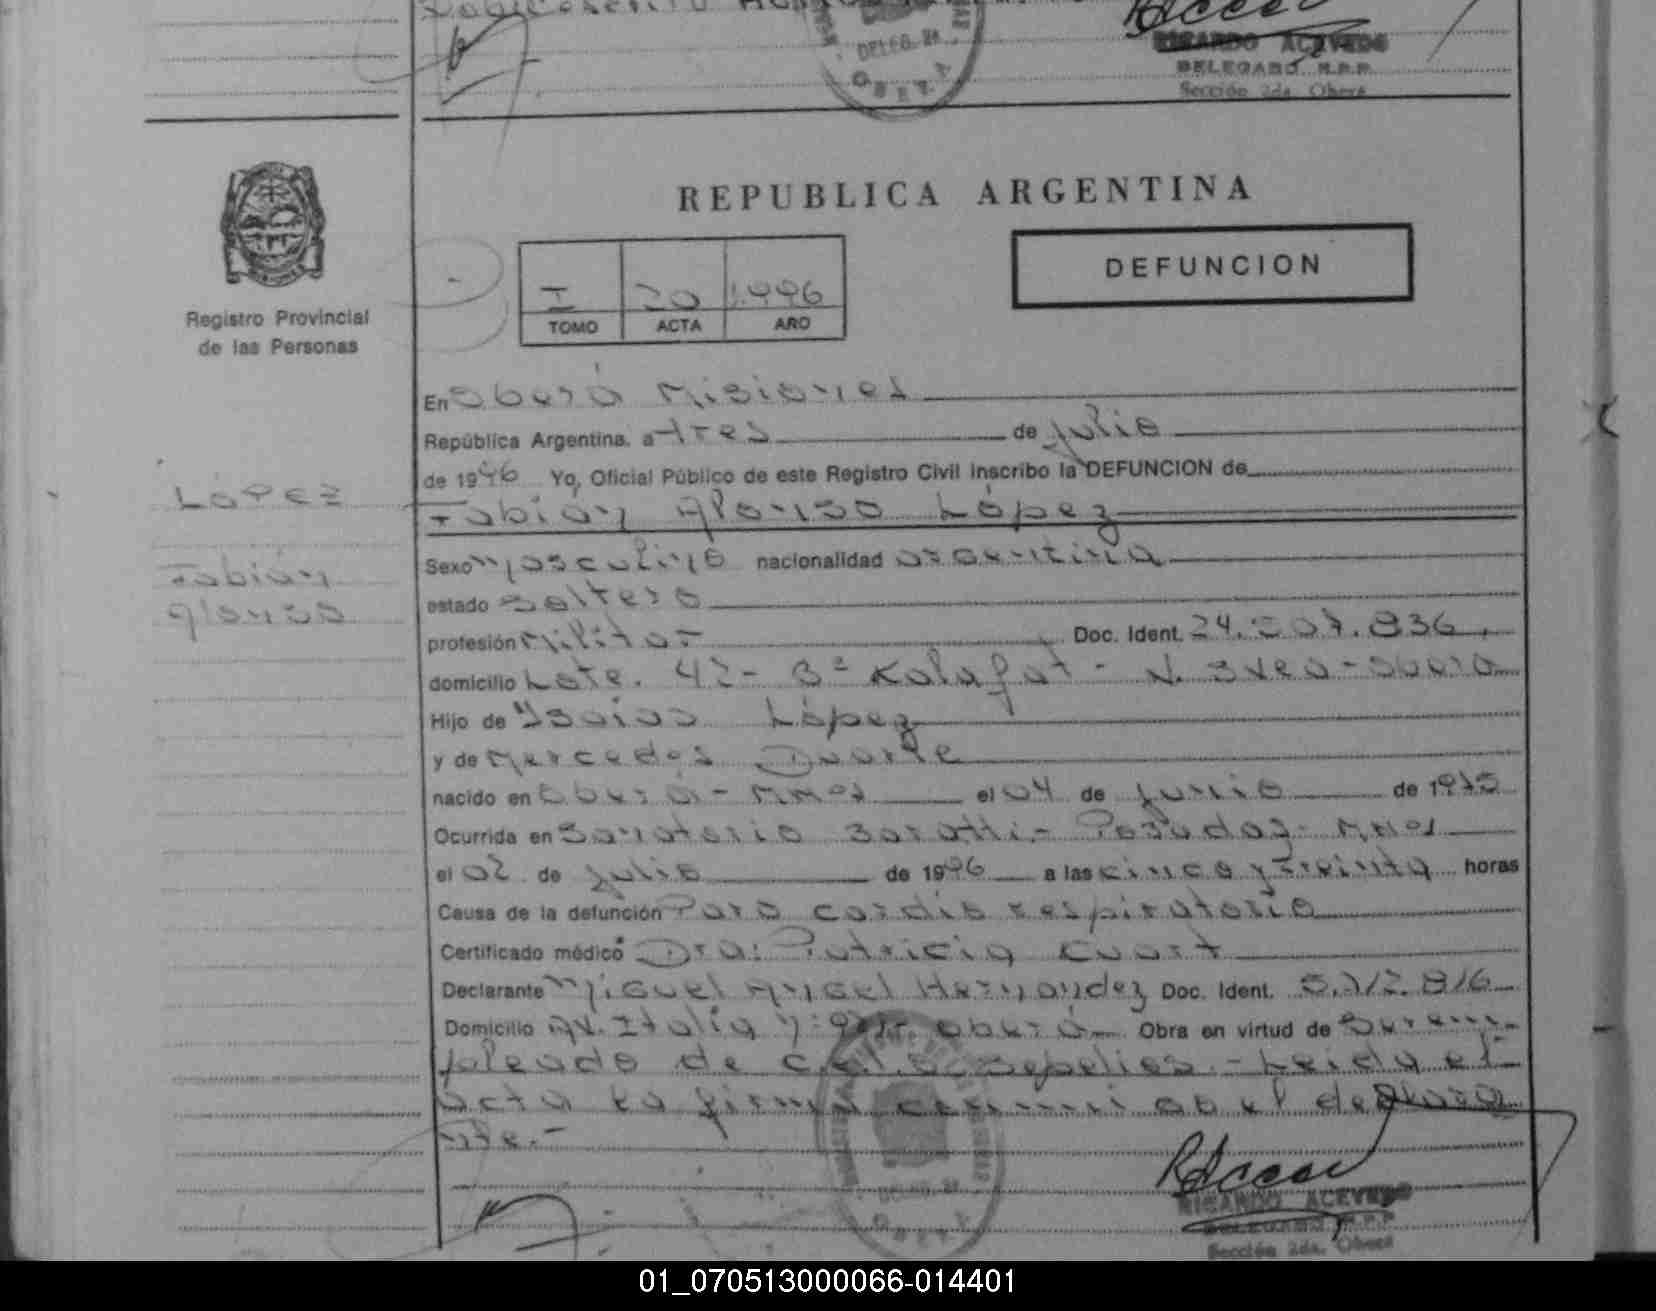 RICARDO ACEVEDO
DELEGADO R.P.P.
Sección 2da. Oberá
DELEG. 2a
OBERA
REPUBLICA ARGENTINA
DEFUNCION
I 20 1.996
TOMO ACTA AÑO
Registro Provincial
de las Personas
En Oberá Misiones
República Argentina, a tres de julio
de 1996 Yo, Oficial Público de este Registro Civil inscribo la DEFUNCION de
LóPEZ
Fabián Alonso López
Sexo masculino nacionalidad argentina
Fabián
Alonso
estado soltero
profesión Militar Doc. Ident. 24.507.836
domicilio Lote. 42- Bº Kalafat - V. Svea - Oberá
Hijo de Ysaias López
y de Mercedes Duarte
nacido en Oberá - Mnes el 04 de junio de 1975
Ocurrida en Sanatorio Boratti - Posadas - Mnes
el 02 de julio de 1996 a las cinco y treinta horas
Causa de la defunción Paro cardio respiratorio
Certificado médico Dra: Patricia Kuart
Declarante Miguel Angel Hernandez Doc. Ident. 5. 816
Domicilio Av. Italia Oberá Obra en virtud de Ser em-
pleado de sepelios. - Leida el
acta la firma conmigo el declara
nte. -
RICARDO ACEVEDO
DELEGADO R.P.P.
Sección 2da. Oberá
DELEG. 2a
01_070513000066-014401